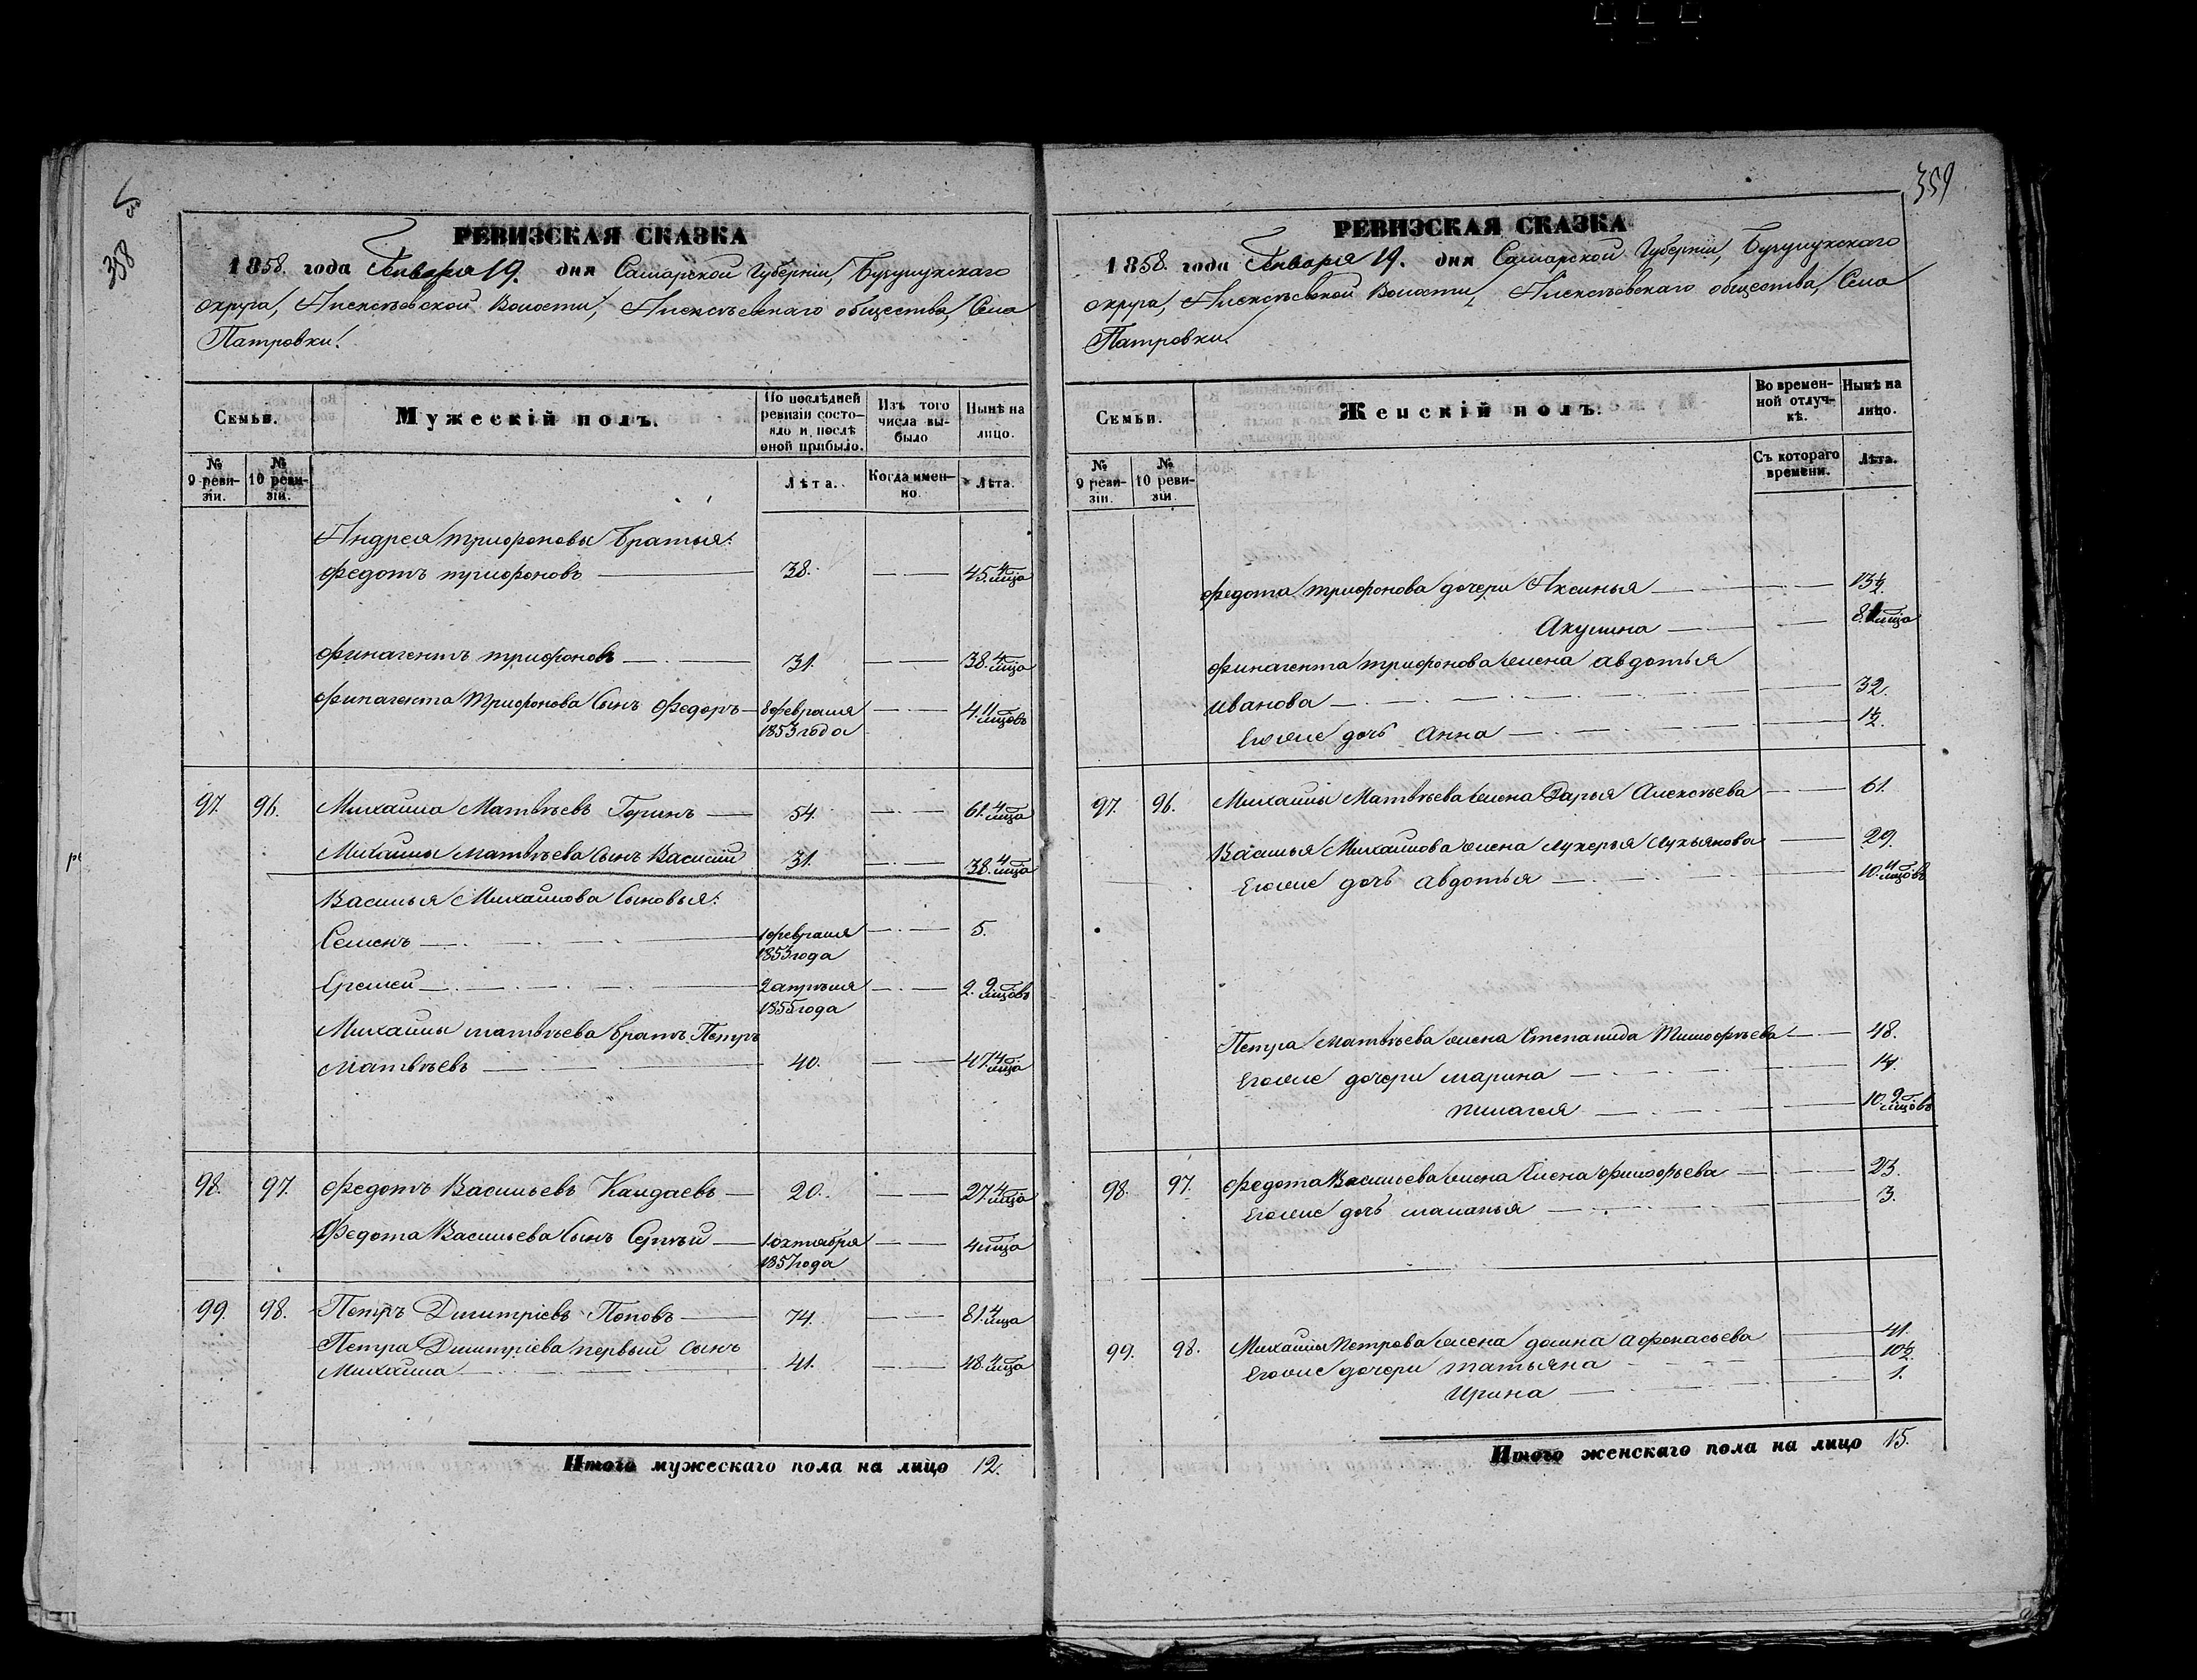 358
РЕВИЗСКАЯ СКАЗКА
1858. года Генваря 19. дня Самарской Губерніи, Бузулукскаго
округа, Алексѣевской Волости, Алексѣевскаго общества, Села
Патровки.
Семьи.
Мужескій полъ.
По послѣдней ревизіи состояло и послѣ оной прибыло.
Изъ того числа выбыло
Нынѣ на лицо.
№ 9 ревизіи.
№ 10 ревизіи.
Лѣта.
Когда именно.
Лѣта.
Андрея Трифонова Братья:
Федотъ Трифоновъ 38. 45. 4 мца
Финагентъ Трифоновъ 31. 38. 4 мца
Финагента Трифонова Сынъ Федоръ 8 февраля 1853 года 4. 11 мцовъ
97. 96. Михайла Матвѣевъ Горинъ 54. 61. 4 мца
Михайлы Матвѣева Сынъ Василій 31. 38. 4 мца
Василья Михайлова Сыновья:
Семенъ 1 февраля 1853 года 5.
Еремей 2 апрѣля 1855 года 2. 9 мцовъ
Михайлы Матвѣева братъ Петръ
Матвѣевъ 40. 47. 4 мца
98. 97. Федотъ Васильевъ Кандаевъ 20. 27. 4 мца
Федота Васильева Сынъ Сергѣй 1 октября 1857 года 4 мца
99. 98. Петръ Димитріевъ Поповъ 74. 81. 4 мца
Петра Димитріева первый сынъ
Михайла 41. 48. 4 мца
Итого мужескаго пола на лицо 12.
359
РЕВИЗСКАЯ СКАЗКА
1858. года Генваря 19. дня Самарской Губерніи, Бузулукскаго
округа, Алексѣевской Волости, Алексѣевскаго общества, Села
Патровки.
Семьи.
Женскій полъ.
Во временной отлучкѣ.
Нынѣ на лицо.
№ 9 ревизіи.
№ 10 ревизіи.
Съ котораго времени.
Лѣта.
Федота Трифонова дочери Аксинья 13½.
Акулина 8. мца
Финагента Трифонова жена Авдотья
Иванова 32.
Его же дочь Анна 1½.
97. 96. Михайлы Матвѣева жена Дарья Алексѣева 61.
Василья Михайлова жена Лукерья Лукьянова 29.
Его же дочь Авдотья 10. 11 мцовъ
Петра Матвѣева жена Степанида Тимофѣева 48.
Его же дочери Марина 14.
Пилагея 10. 9 мцовъ
98. 97. Федота Васильева жена Елена 23.
Его же дочь Маланья 3.
99. 98. Михайлы Петрова жена Домна Афонасьева 41.
Его же дочери Татьяна 10½.
Ирина 1.
Итого женскаго пола на лицо 15.